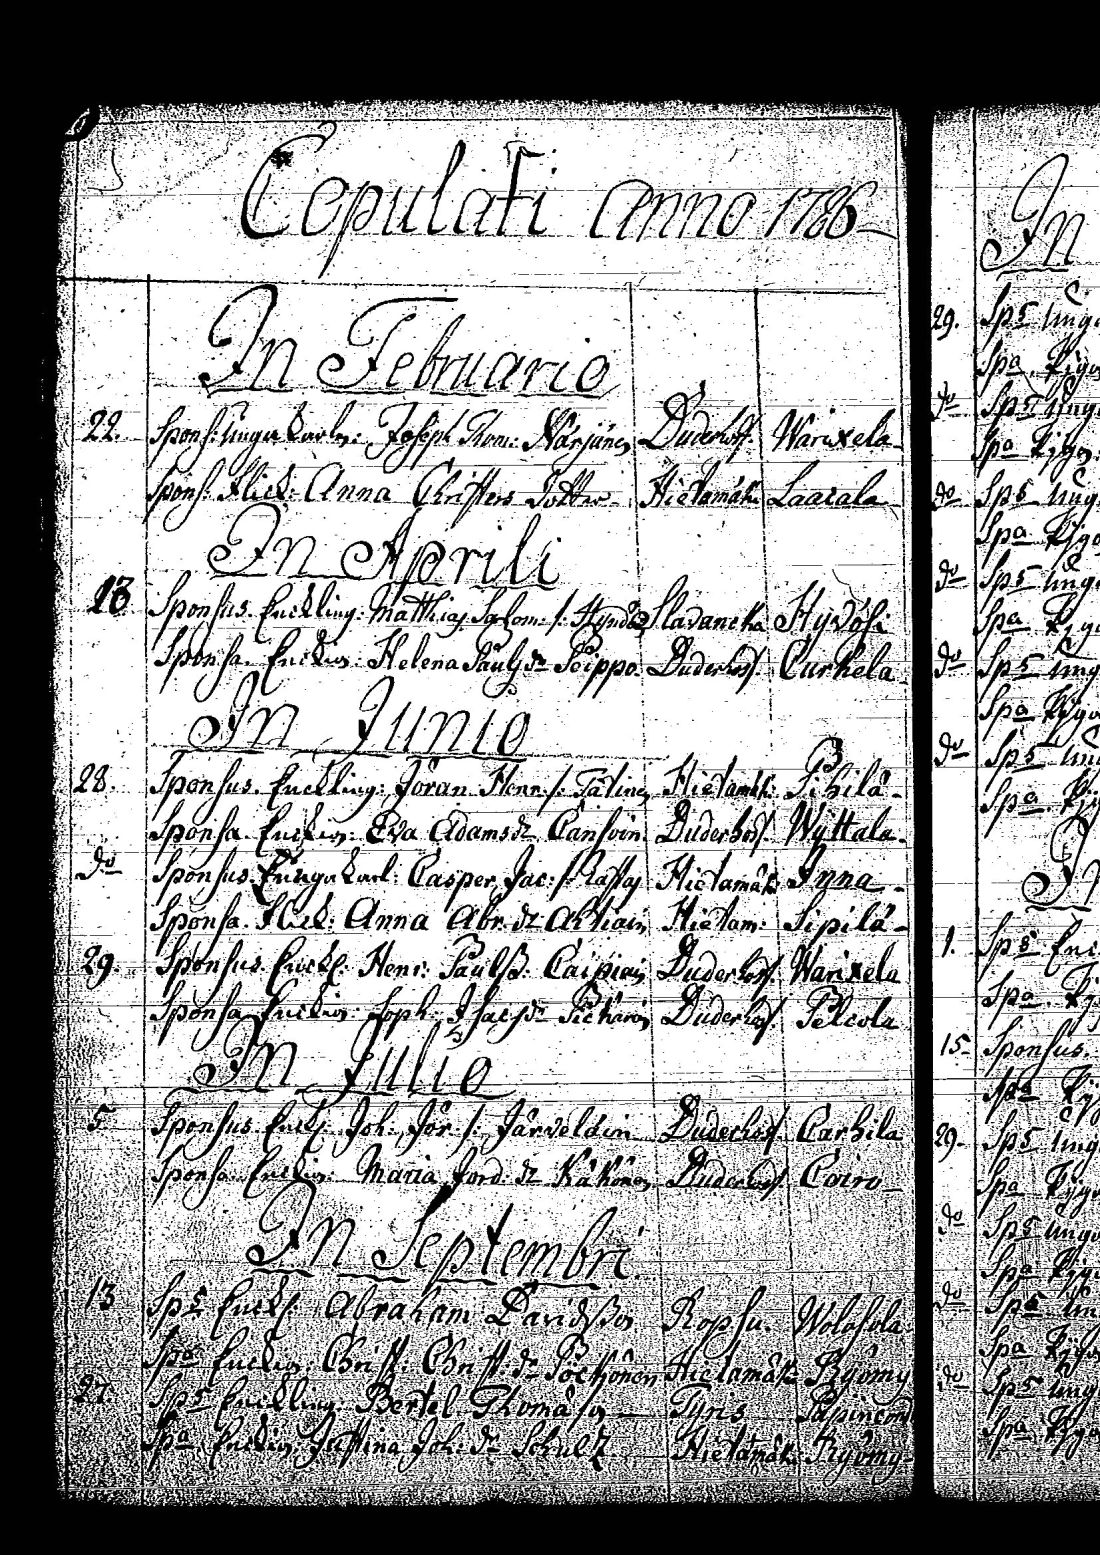 Copulati Anno 1786
In Februario
22. Spons: Unga Karlen: Joseph Thom: Närjänen Duderhof Warixela
Spons: Flick: Anna Christers Dotter Hietamäk: Laacala
In Aprili
13 Sponsus Enckling: Matthias Salom: s: Slavancka Hyvösi
Sponsa Enckan: Helena Paulsdr Peippo Duderhof Curkela
In Junio
28. Sponsus Enckling: Jöran Henr: s: Tätinen Hietamäk: Pihilä
Sponsa Enckan: Eva Adamsdr Cansoin Duderhof Wyttala
do Sponsus Unga Karl: Casper Jac: s: Hietamäk Inna
Sponsa Flick: Anna Abr: dr Ahtiain Hietam: Sipilä
29. Sponsus Enckl: Henr: Paulss: Caipiain Duderhof Warixela
Sponsa Enckan: Soph: Isacsdr Duderhof Pelcola
In Julio
5 Sponsus Enckl: Joh: Jör: s: Järveläin Duderhof Carhila
Sponsa Enckan: Maria Jord: dr Käkönen Duderhof Cairo
In Septembri
13 Sps Enckl: Abraham Davidsson Ropsu Wolosola
Spa Enckan: Christ: Christ: dr Pöckönen Hietamäk Ryömy
27. Sps Enckling: Bertel Thomason Tyris
Spa Enckan: Justina Joh: dr Schultz Hietamäk: Ryömy
In
29. Sps Unga
Spa
do Sps Unga
Spa
do Sps Unga
Spa
do Sps Unga
Spa
do Sps Unga
Spa
do Sps
Spa
1. Sps Enc
Spa
15 Sponsus
Spa
29. Sps Unga
Spa
do Sps Unga
Spa
do Sps
Spa
do Sps Unga
Spa